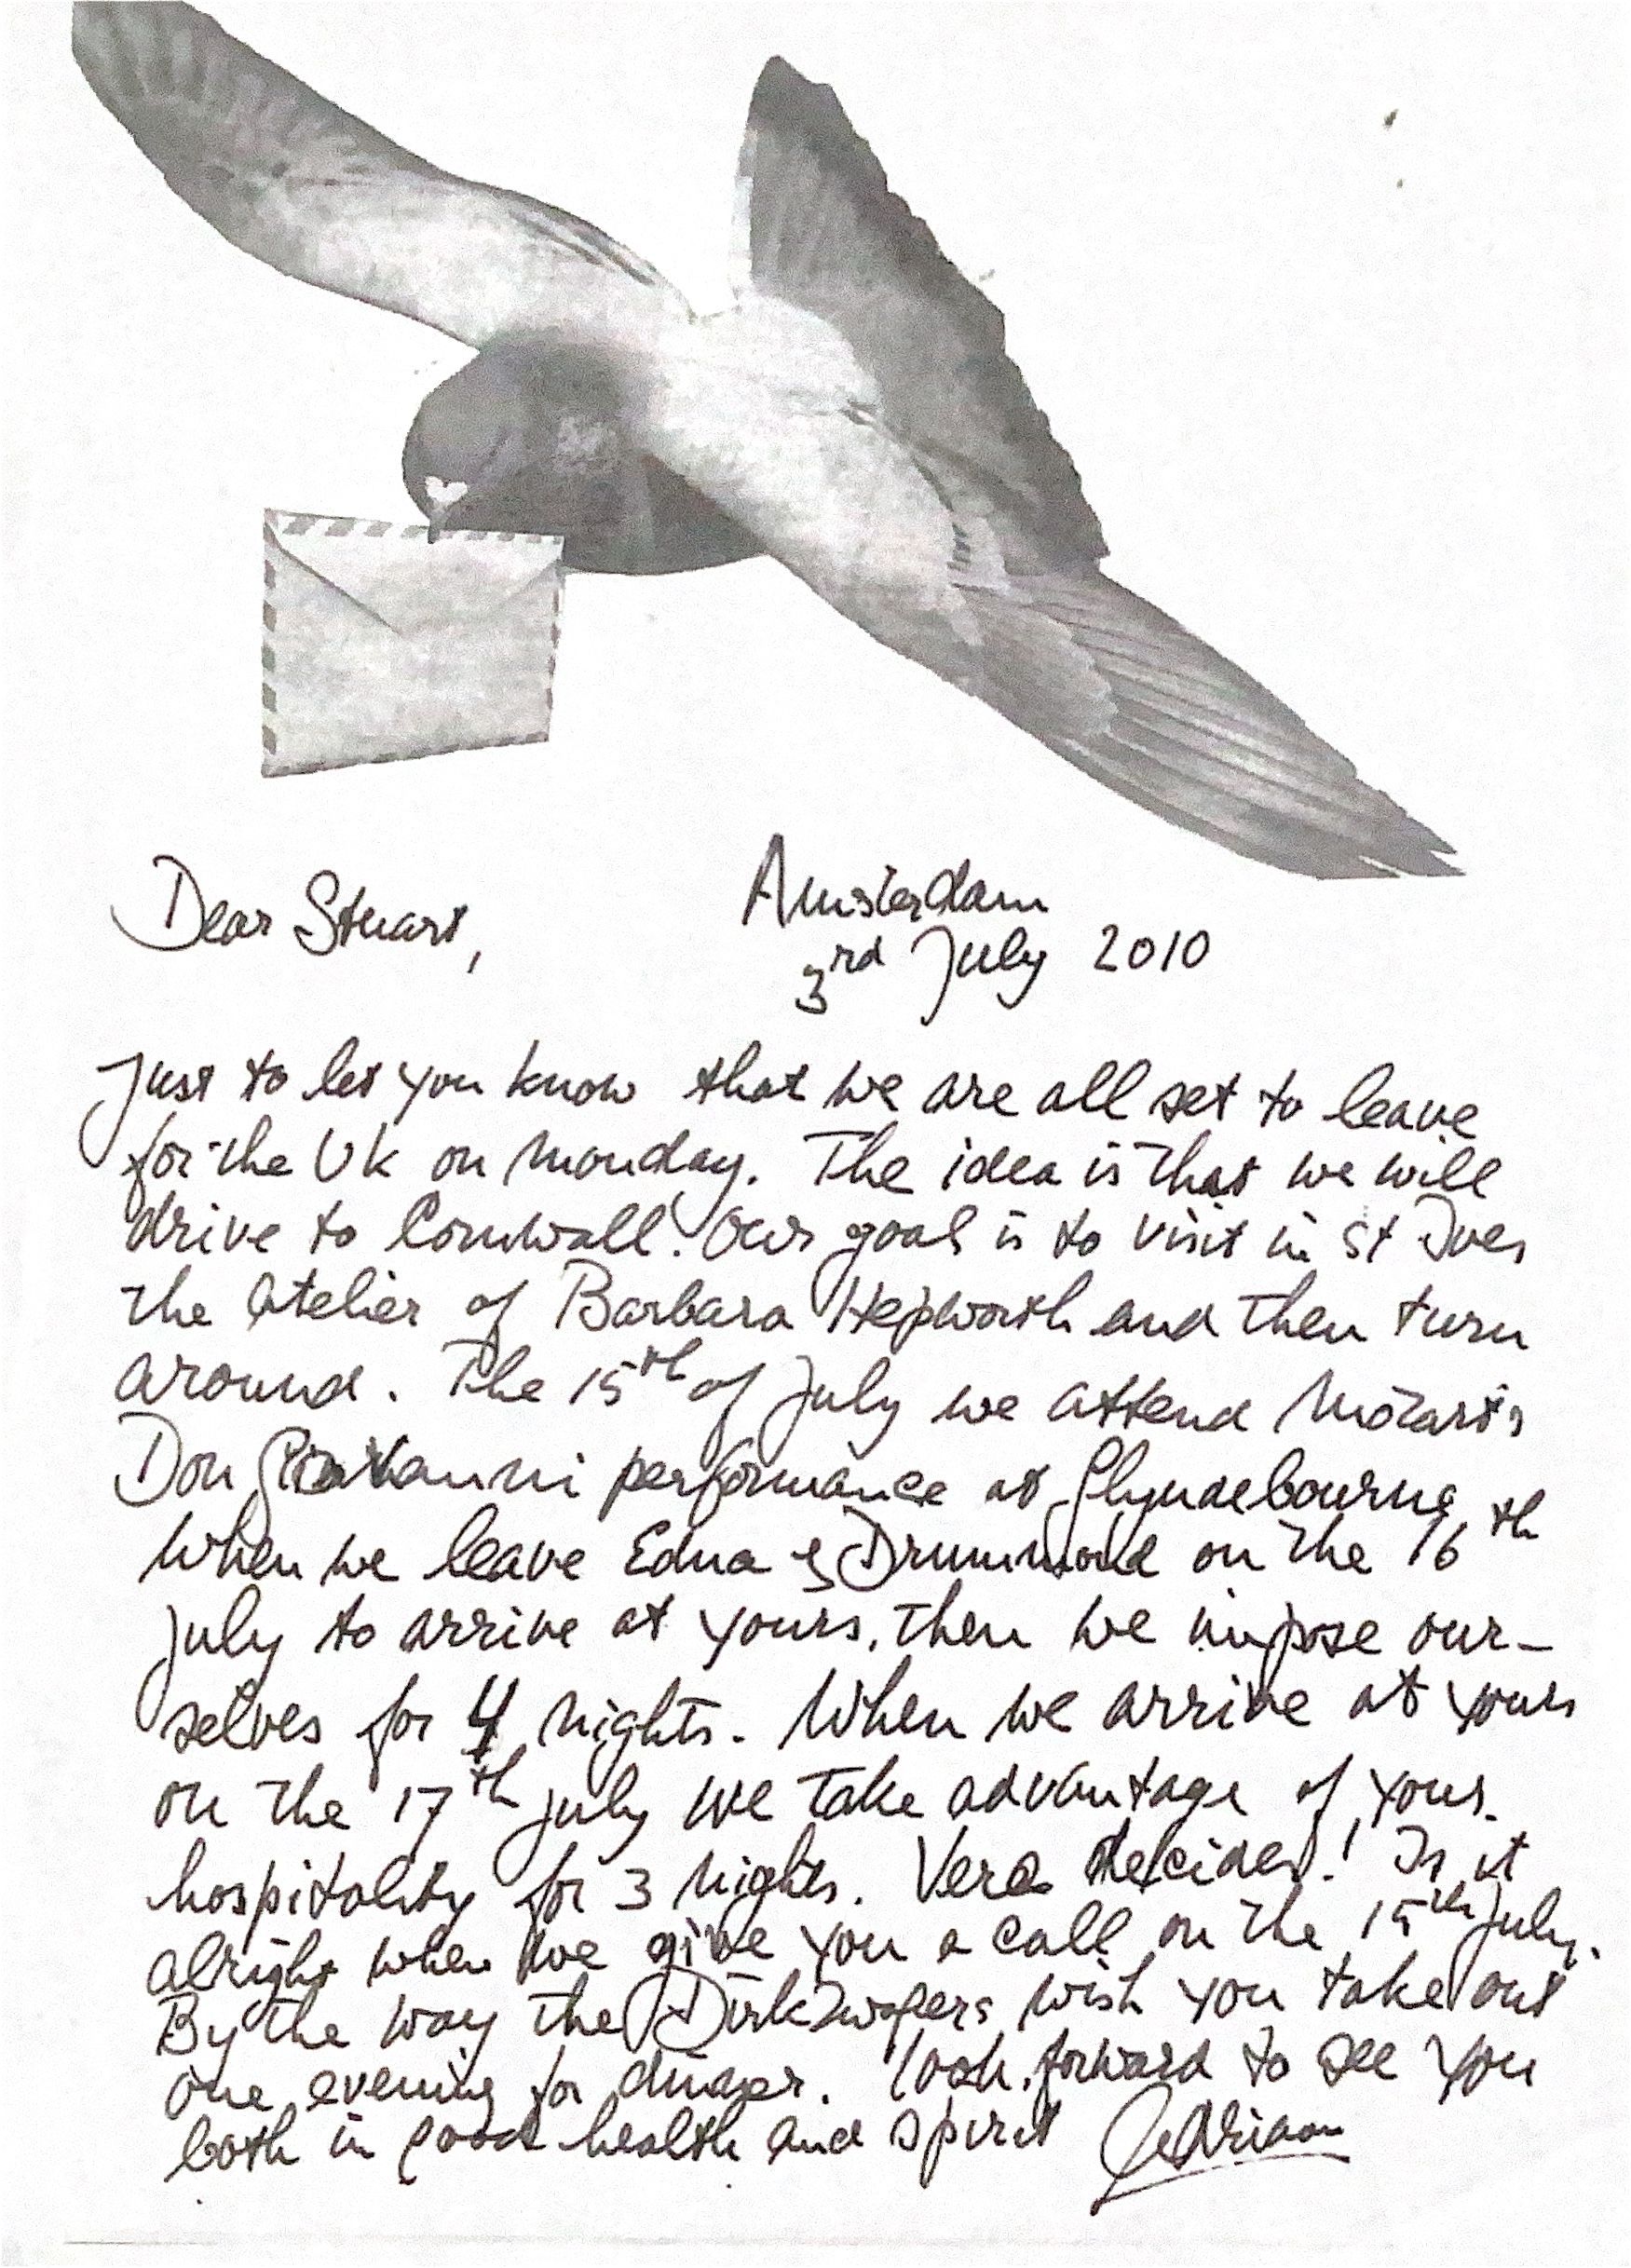 Dear Stuart,
Amsterdam
3rd July 2010
Just to let you know that we are all set to leave
for the UK on Monday. The idea is that we will
drive to Cornwall. Our goal is to visit in St Ives
the atelier of Barbara Hepworth and then turn
around. The 15th of July we attend Mozart's
Don Giovanni performance at Glyndebourne
When we leave Edna & Drummond on the 16th
July to arrive at yours, then we impose our-
selves for 4 nights. When we arrive at yours
on the 17th July we take advantage of your
hospitality for 3 nights. Vera decides! Is it
alright when we give you a call on the 15th July.
By the way the Dirkzwagers wish you take out
one evening for dinner. look forward to see you
both in good health and spirit